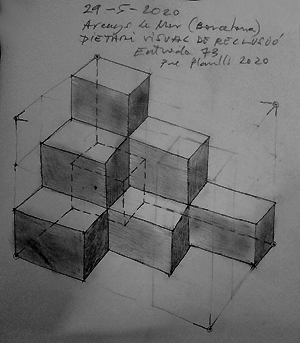 29-5-2020
Arenys de Mar (Barcelona)
DIETARI VISUAL DE RECLUSIÓ
Entrada 73
Planells 2020